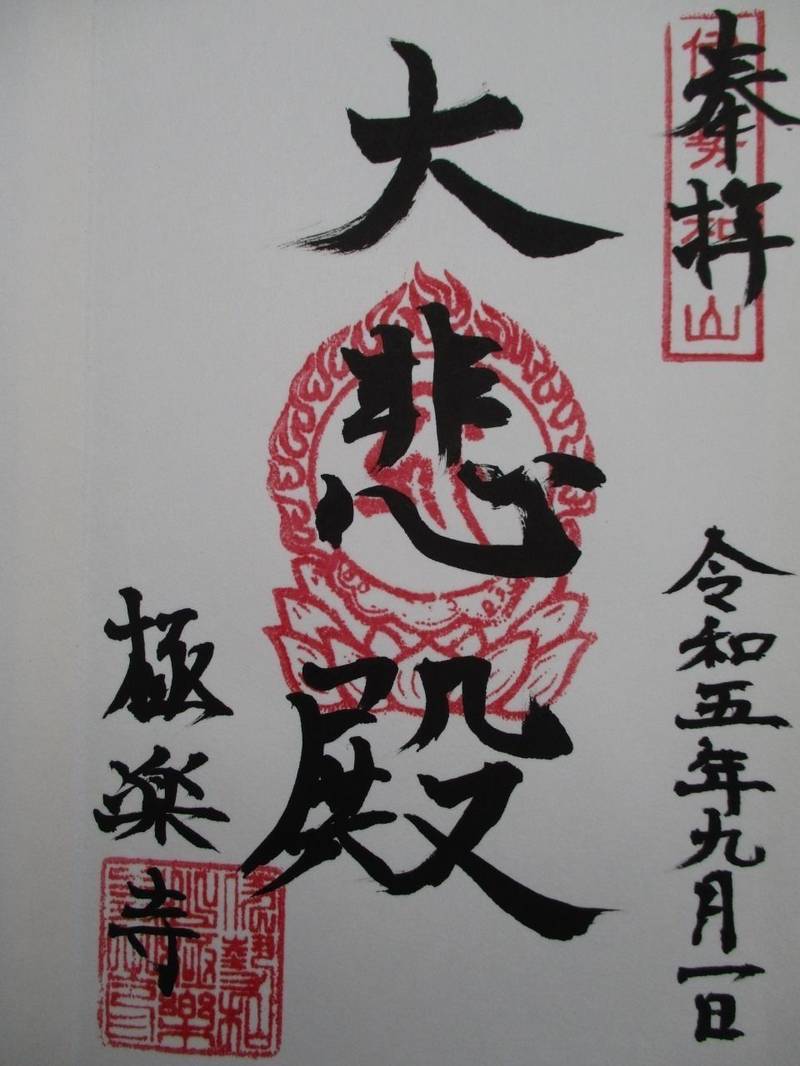 奉拝
伊勢和山
令和五年九月一日
大悲殿
極楽寺